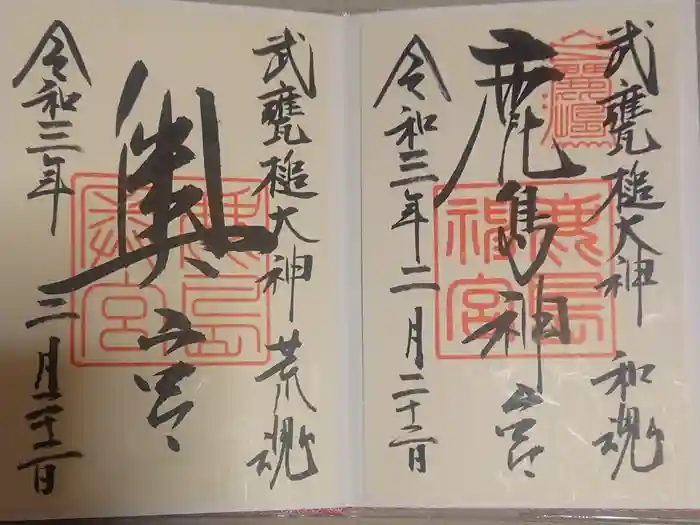 武甕槌大神 和魂
鹿島神宮
令和三年二月二十二日
鹿島
神宮
武甕槌大神 荒魂
奥宮
令和三年三月二十二日
鹿島
奥宮